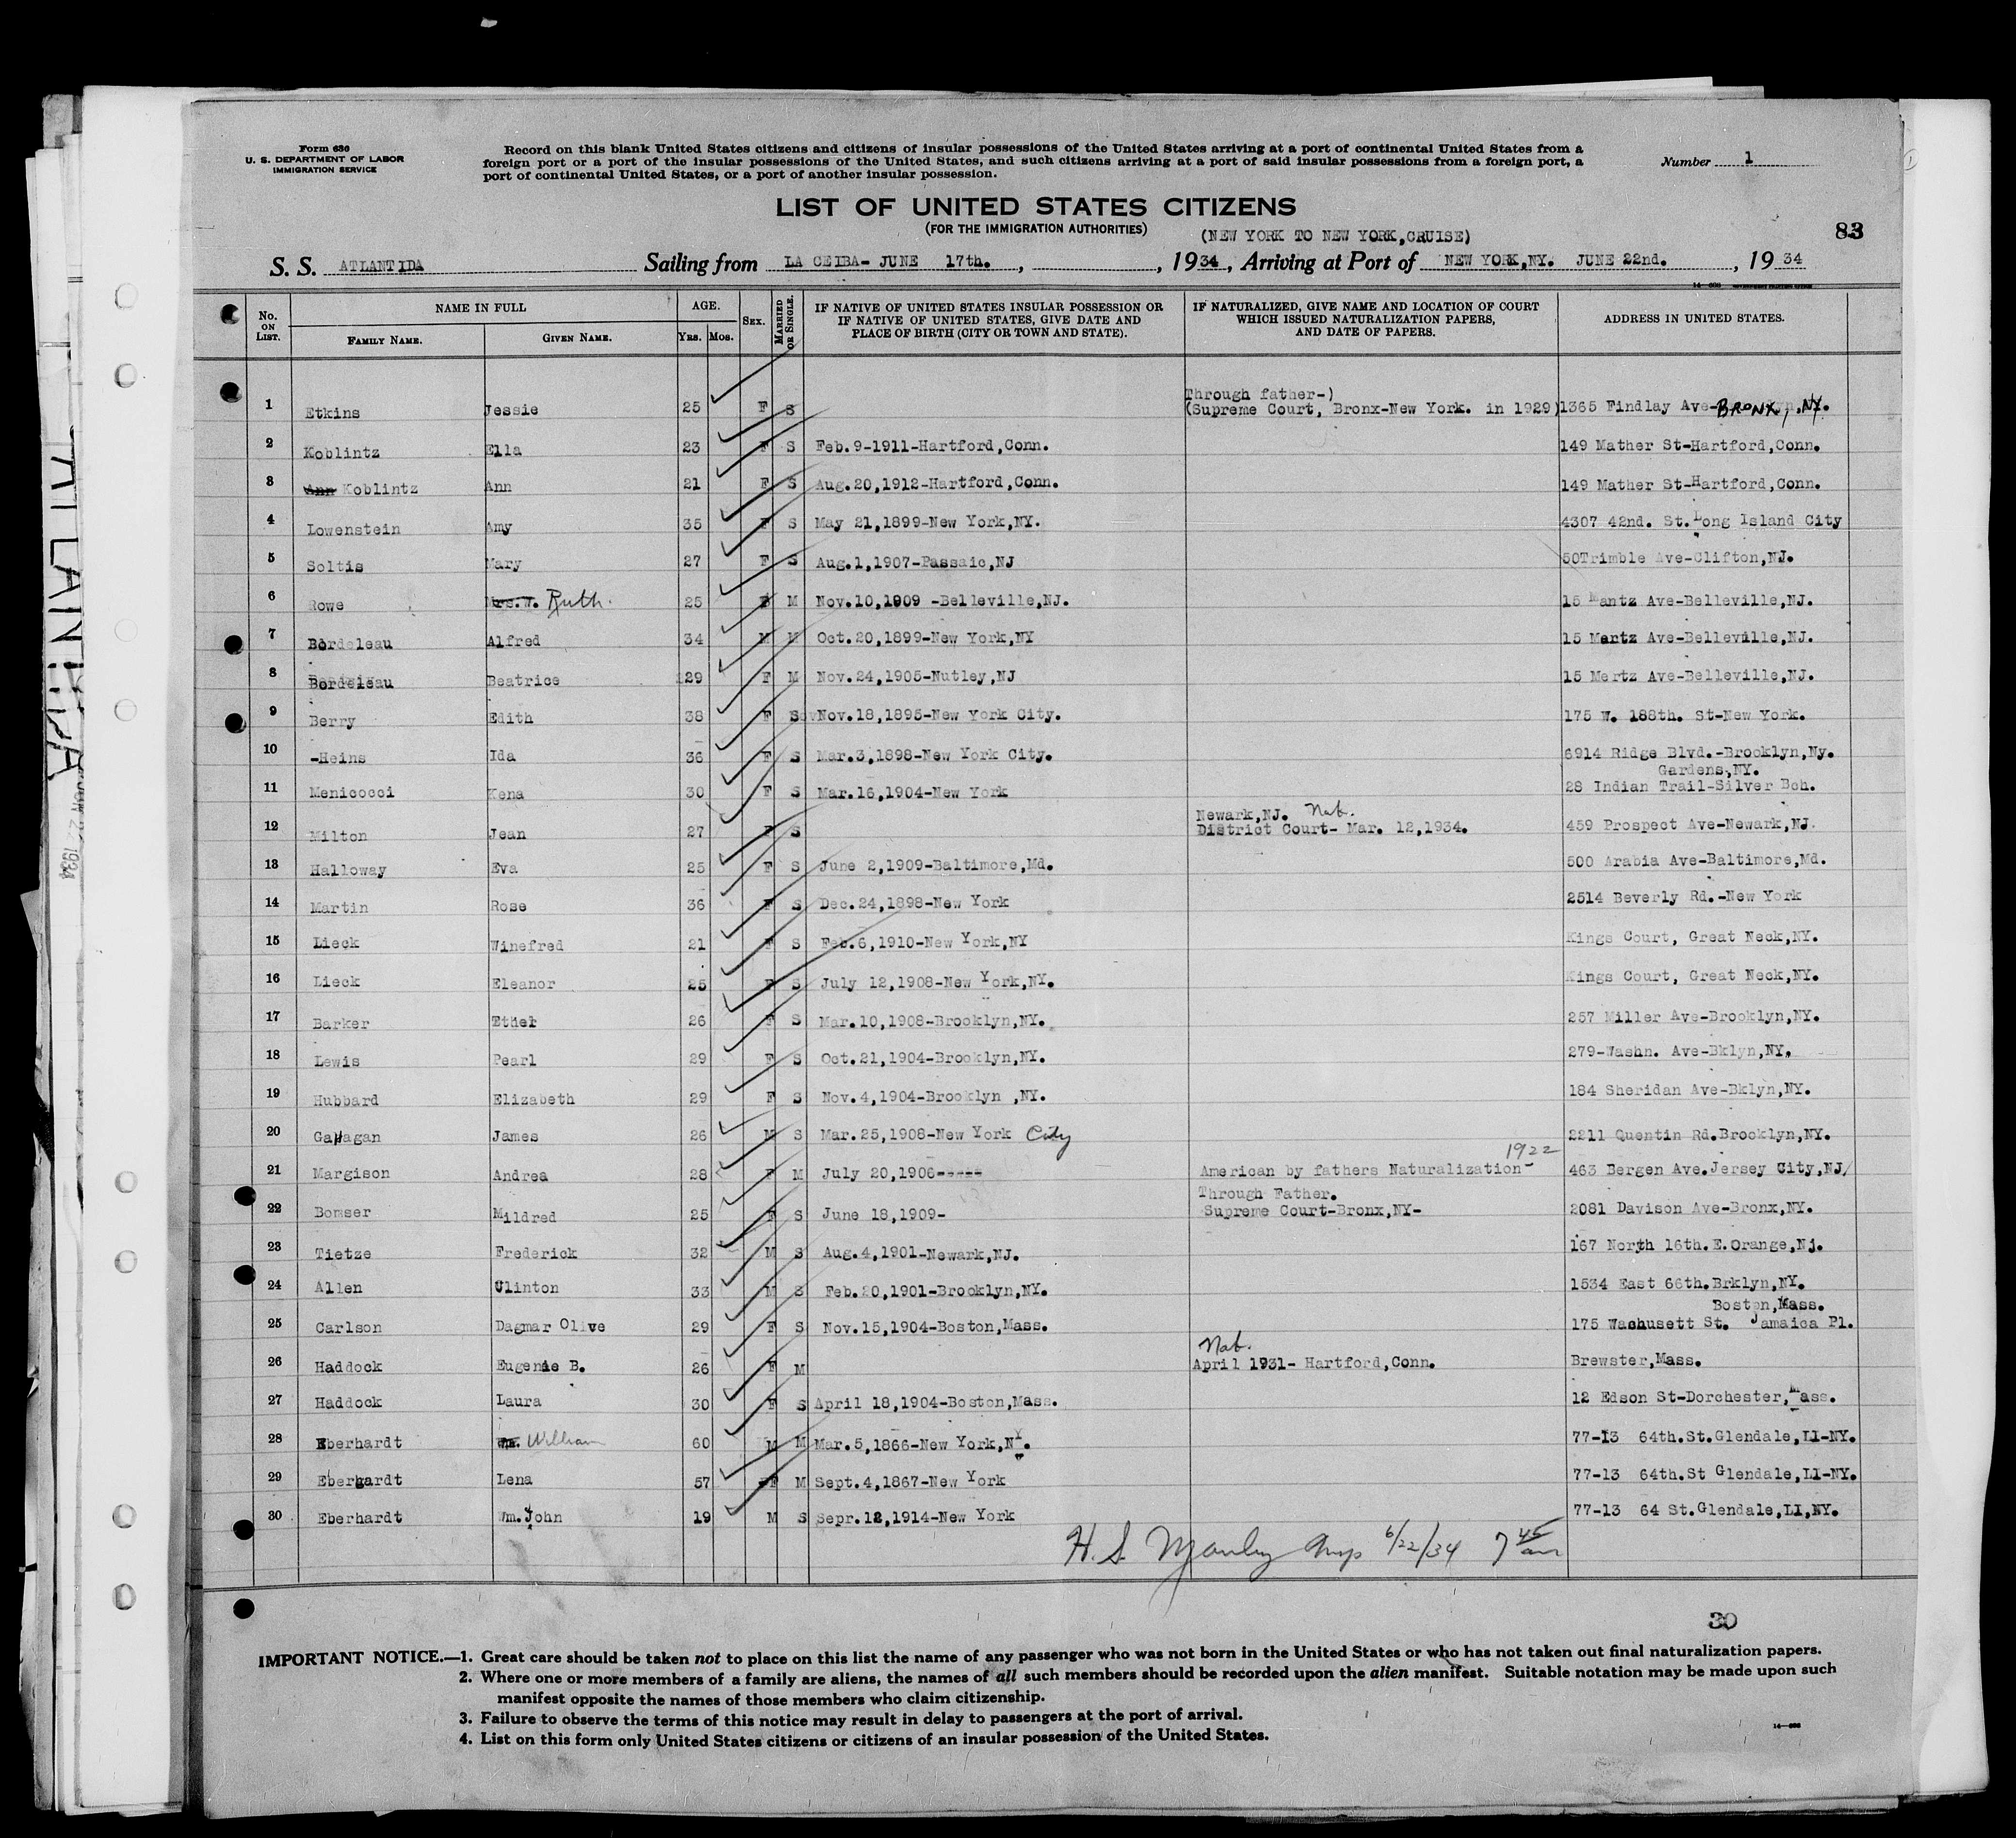 Form 630
U. S. DEPARTMENT OF LABOR
IMMIGRATION SERVICE
Record on this blank United States citizens and citizens of insular possessions of the United States arriving at a port of continental United States from a
foreign port or a port of the insular possessions of the United States, and such citizens arriving at a port of said insular possessions from a foreign port, a
port of continental United States, or a port of another insular possession.
Number 1
LIST OF UNITED STATES CITIZENS
(FOR THE IMMIGRATION AUTHORITIES)
(NEW YORK TO NEW YORK,CRUISE)
83
S. S. ATLANTIDA Sailing from LA CEIBA- JUNE 17th. , , 1934 , Arriving at Port of NEW YORK,NY. JUNE 22nd. , 1934
No. ON LIST. NAME IN FULL FAMILY NAME. GIVEN NAME. AGE. YRS. MOS. SEX. MARRIED OR SINGLE. IF NATIVE OF UNITED STATES INSULAR POSSESSION OR IF NATIVE OF UNITED STATES, GIVE DATE AND PLACE OF BIRTH (CITY OR TOWN AND STATE). IF NATURALIZED, GIVE NAME AND LOCATION OF COURT WHICH ISSUED NATURALIZATION PAPERS, AND DATE OF PAPERS. ADDRESS IN UNITED STATES.
Through father-)
1 Etkins Jessie 25 F S (Supreme Court, Bronx-New York. in 1929) 1365 Findlay Ave-BRONX, NY.
2 Koblintz Ella 23 F S Feb.9-1911-Hartford,Conn. 149 Mather St-Hartford,Conn.
3 Ann Koblintz Ann 21 F S Aug.20,1912-Hartford,Conn. 149 Mather St-Hartford,Conn.
4 Lowenstein Amy 35 F S May 21,1899-New York,NY. 4307 42nd. St.Long Island City
5 Soltis Mary 27 F S Aug.1,1907-Passaic,NJ 50Trimble Ave-Clifton,NJ.
6 Rowe Mrs.W. Ruth. 25 M Nov.10,1909 -Belleville,NJ. 15 Mantz Ave-Belleville,NJ.
7 Bordeleau Alfred 34 M M Oct.20,1899-New York,NY 15 Mertz Ave-Belleville,NJ.
8 Bordeleau Beatrice 29 F M Nov.24,1905-Nutley,NJ 15 Mertz Ave-Belleville,NJ.
9 Berry Edith 38 F S Nov.18,1895-New York City. 175 W. 188th. St-New York.
10 -Heins Ida 36 F S Mar.3,1898-New York City. 6914 Ridge Blvd.-Brooklyn,Ny.
Gardens,NY.
11 Menicocci Kena 30 F S Mar.16,1904-New York 28 Indian Trail-Silver Bch.
Newark,NJ. Nat.
12 Milton Jean 27 F S District Court- Mar. 12,1934. 459 Prospect Ave-Newark,NJ.
13 Halloway Eva 25 F S June 2,1909-Baltimore,Md. 500 Arabia Ave-Baltimore,Md.
14 Martin Rose 36 F S Dec.24,1898-New York 2514 Beverly Rd.-New York
15 Lieck Winefred 21 F S Feb.6,1910-New York,NY Kings Court, Great Neck,NY.
16 Lieck Eleanor 25 F S July 12,1908-New York,NY. Kings Court, Great Neck,NY.
17 Barker Ethel 26 F S Mar.10,1908-Brooklyn,NY. 257 Miller Ave-Brooklyn,NY.
18 Lewis Pearl 29 F S Oct.21,1904-Brooklyn,NY. 279-Washn. Ave-Bklyn,NY.
19 Hubbard Elizabeth 29 F S Nov.4,1904-Brooklyn ,NY. 184 Sheridan Ave-Bklyn,NY.
20 Gahagan James 26 M S Mar.25,1908-New York City 2211 Quentin Rd.Brooklyn,NY.
1922
21 Margison Andrea 28 F M July 20,1906----- American by fathers Naturalization- 463 Bergen Ave.Jersey City,NJ/
Through Father.
22 Bomser Mildred 25 F S June 18,1909- Supreme Court-Bronx,NY- 2081 Davison Ave-Bronx,NY.
23 Tietze Frederick 32 M S Aug.4,1901-Newark,NJ. 167 North 16th.E.Orange,Nj.
24 Allen Clinton 33 M S Feb.20,1901-Brooklyn,NY. 1534 East 66th.Brklyn,NY.
Boston,Mass.
25 Carlson Dagmar Olive 29 F S Nov.15,1904-Boston,Mass. 175 Wachusett St. Jamaica Pl.
Nat.
26 Haddock Eugenie B. 26 F M April 1931- Hartford,Conn. Brewster,Mass.
27 Haddock Laura 30 F S April 18,1904-Boston,Mass. 12 Edson St-Dorchester,Mass.
28 Eberhardt Wm. William 60 M M Mar.5,1866-New York,NY. 77-13 64th.St.Glendale,LI-NY.
29 Eberhardt Lena 57 F M Sept.4,1867-New York 77-13 64th.St Glendale,LI-NY.
30 Eberhardt Wm.John 19 M S Sepr.12,1914-New York 77-13 64 St.Glendale,LI,NY.
H. S. Manley Insp 6/22/34 7 45 am
30
IMPORTANT NOTICE.—1. Great care should be taken not to place on this list the name of any passenger who was not born in the United States or who has not taken out final naturalization papers.
2. Where one or more members of a family are aliens, the names of all such members should be recorded upon the alien manifest. Suitable notation may be made upon such
manifest opposite the names of those members who claim citizenship.
3. Failure to observe the terms of this notice may result in delay to passengers at the port of arrival.
4. List on this form only United States citizens or citizens of an insular possession of the United States.